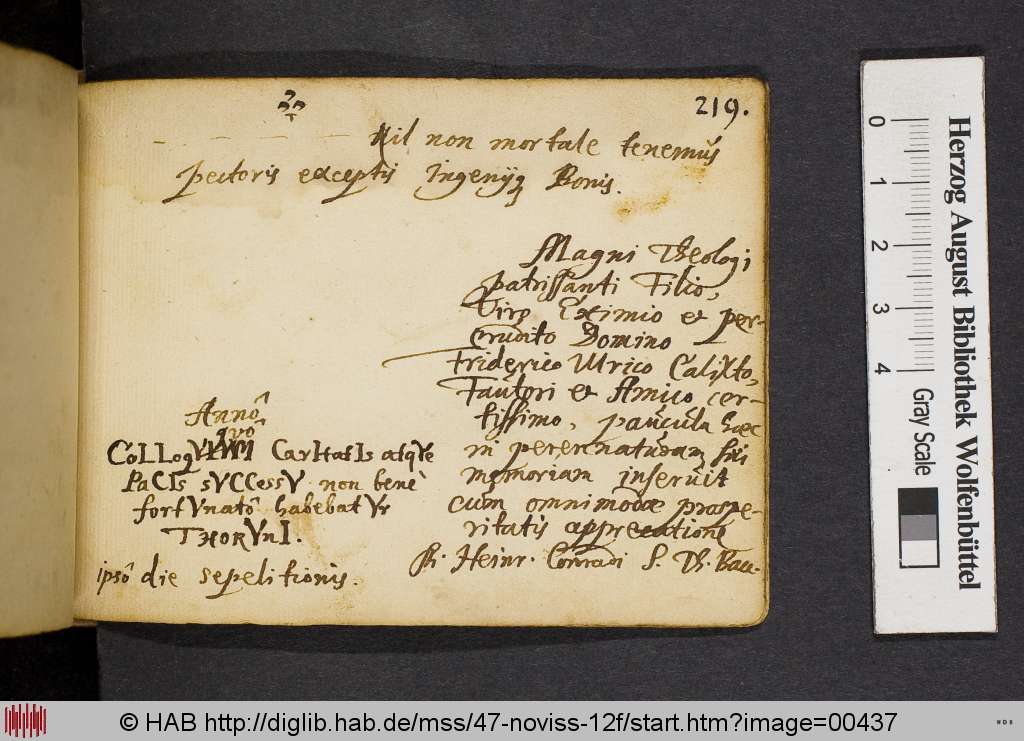 219.
Nil non mortale tenemus
pectoris exceptis Ingenijq Bonis.
Magni Theologi
patrissanti Filio,
Viro Eximio et per-
erudito Domino
Friderico Ulrico Calixto,
Fautori et Amico cer-
tissimo, paucula hæc
in perennaturam sui
memoriam inseruit
cum omnimodæ prospe-
ritatis apprecatione
M. Heinr. Conradi S. Th. Bacc.
Annô
quô
CoLLoqVIVM CarItatIs atqVe
PaCIs sVCCessV non benè
fortVnatô habebatVr
THorVnI.
ipsô die sepelitionis.
0 1 2 3 4
Gray Scale
Herzog August Bibliothek Wolfenbüttel
© HAB http://diglib.hab.de/mss/47-noviss-12f/start.htm?image=00437